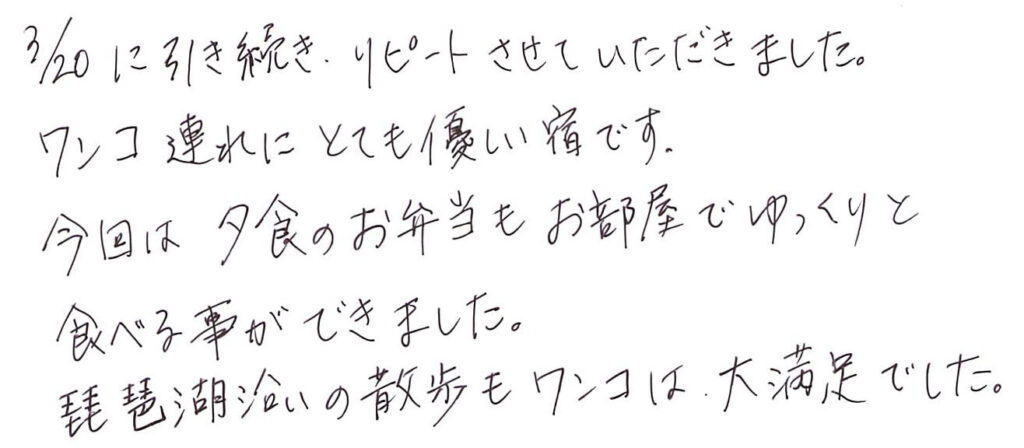 3/20 に引き続き、リピートさせていただきました。
ワンコ連れにとても優しい宿です。
今回は夕食のお弁当もお部屋でゆっくりと
食べる事ができました。
琵琶湖沿いの散歩もワンコは、大満足でした。